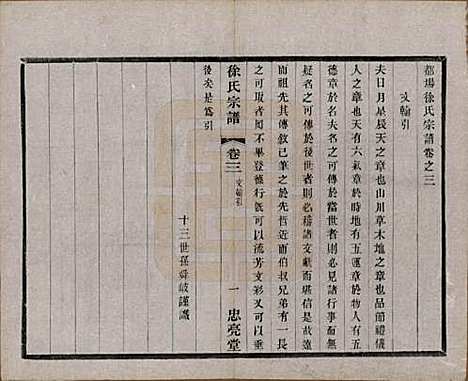 都場徐氏宗譜卷之三
文翰引
夫日月星辰天之章也山川草木地之章也品節禮儀
人之章也天有六氣章於時地有五運章於物人有五
德章於名夫名之可傳於當世者則必見諸行事而無
疑者之可傳於後世者則必稽諸文獻而堪信是故遠
而祖先其傳敘已筆之於先哲近而伯叔兄弟有一長
之可取者罔不畢登雖行旣可以流芳文彩又可以垂
後矣是爲引
十三世孫舜岐謹識
徐氏宗譜
卷三
文翰引
一
忠亮堂